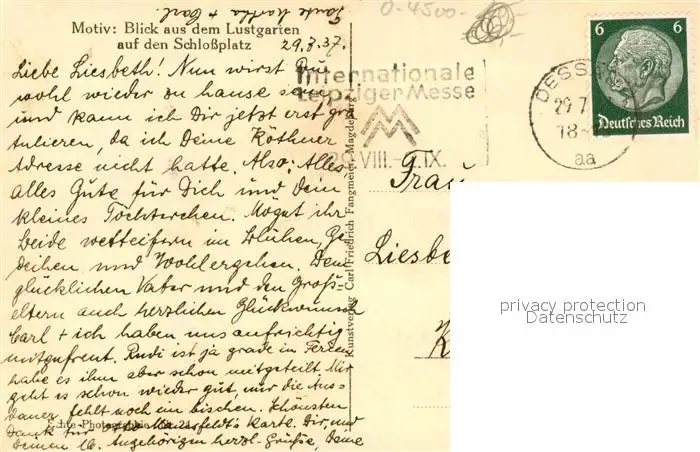 Tante Martha + Carl.
0-4500-
Motiv: Blick aus dem Lustgarten
auf den Schloßplatz
29.7.37.
Liebe Liesbeth! Nun wirst Du
wohl wieder zu hause sein
und kann ich Dir jetzt erst gra
tulieren, da ich Deine Köthner
Adresse nicht hatte. Also: Alles
alles Gute für Dich und Dein
kleines Töchterchen. Möget ihr
beide wetteifern im blühen, Ge
deihen und Wohlergehen. Dem
glücklichen Vater und den Groß-
eltern auch herzlichen Glückwunsch
Carl + ich haben uns aufrichtig
mitgefreut. Rudi ist ja grade in Ferien
habe es ihm aber schon mitgeteilt. Mir
geht es schon wieder gut, nur die Aus-
dauer fehlt noch ein bischen. Schönsten
Dank für Karte. Dir, und
Deinen lb. Angehörigen herzl. Grüße, Deine
Echte Photographie
Kunstverlag Carl Friedrich Fangmeier, Magdeburg
Internationale
Leipziger Messe
29.VIII.-2.IX.
DESSAU
29.7.
18-
aa
6 6
Deutsches Reich
Frau
Liesbe
K
privacy protection
Datenschutz